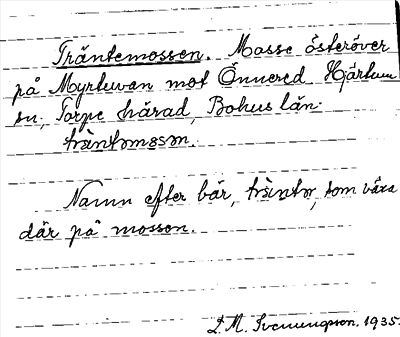 Träntemossen. Mosse österöver
på Myrtuvan mot Önnered Hjärtum
sn, Torpe härad, Bohus län.
träntəmɔsən.
Namn efter bär, träntər, som växa
där på mossen.
D. M. Svenungsson. 1935.